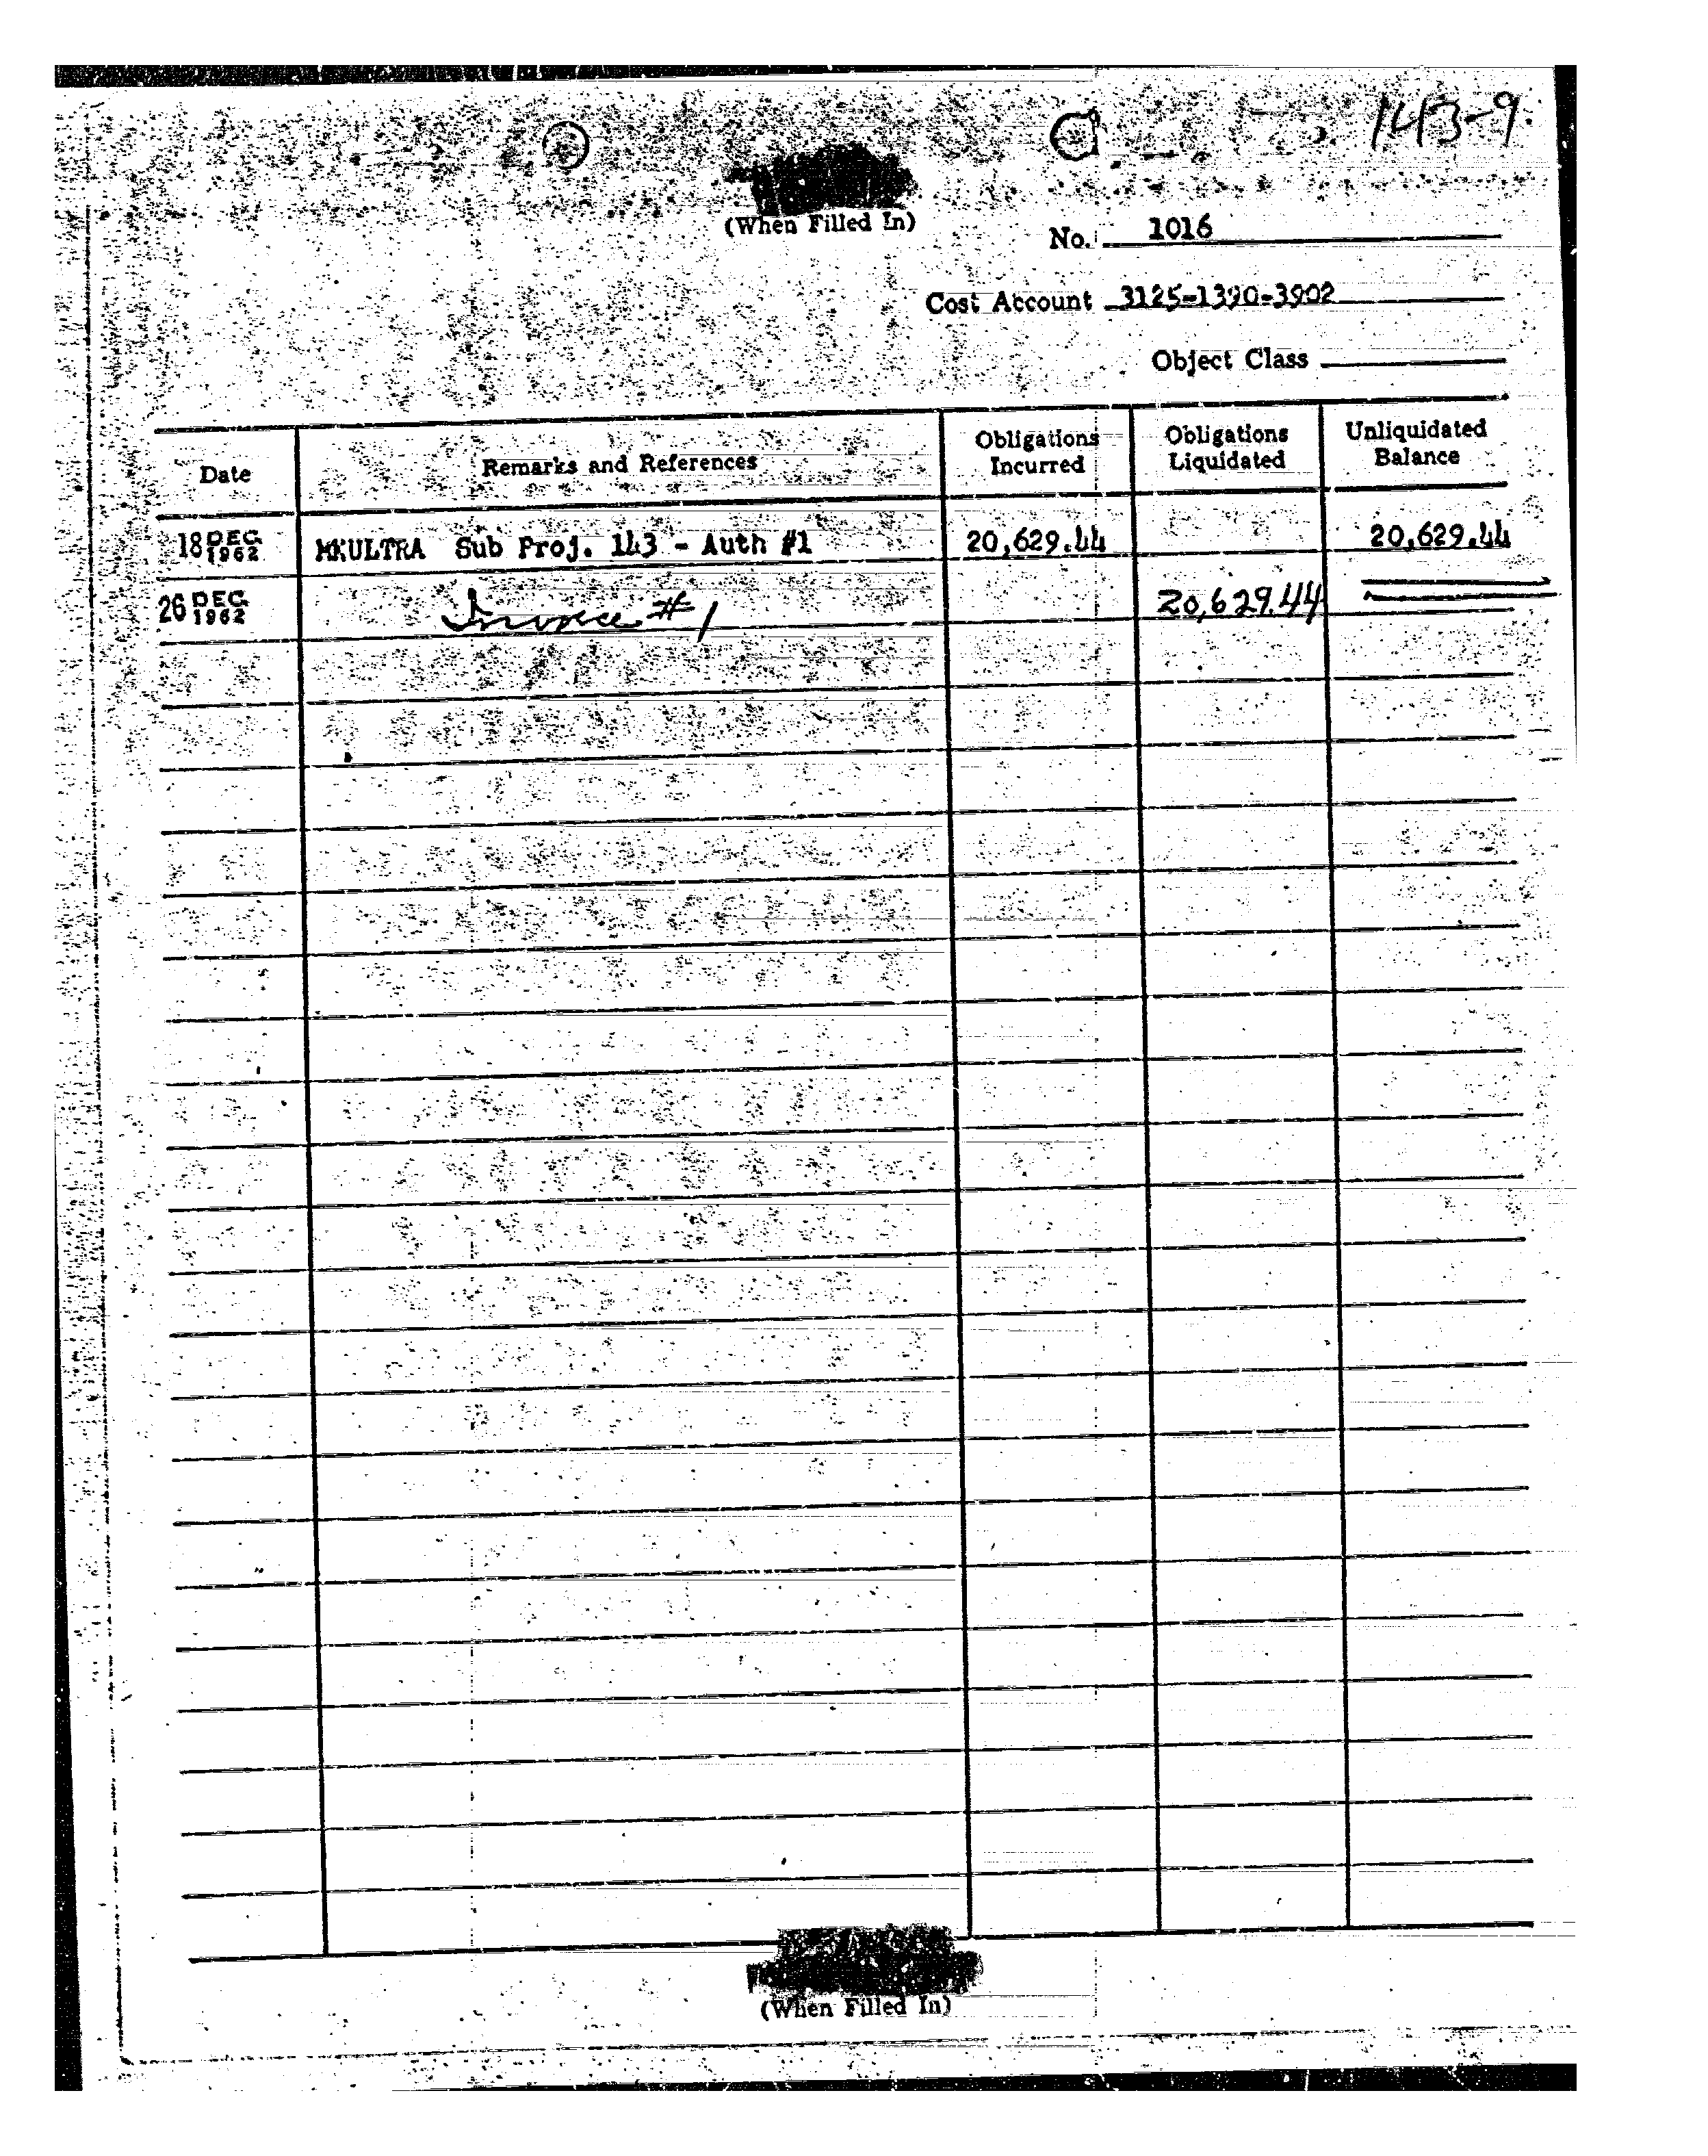 143-9
(When Filled In)
No. 1016
Cost Account 3125-1390-3902
Object Class
Date Remarks and References Obligations Incurred Obligations Liquidated Unliquidated Balance
18 DEC 1962 MKULTRA Sub Proj. 143 - Auth #1 20,629.44 20,629.44
26 DEC 1962 Invoice #1 20,629.44
(When Filled In)